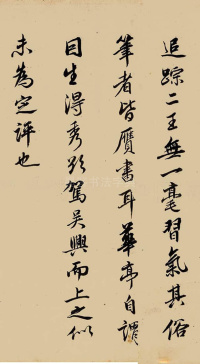 追踪二王無一毫習氣其俗
筆者皆贗書耳華亭自謂
因生得秀欲駕吳興而上之似
未為定評也